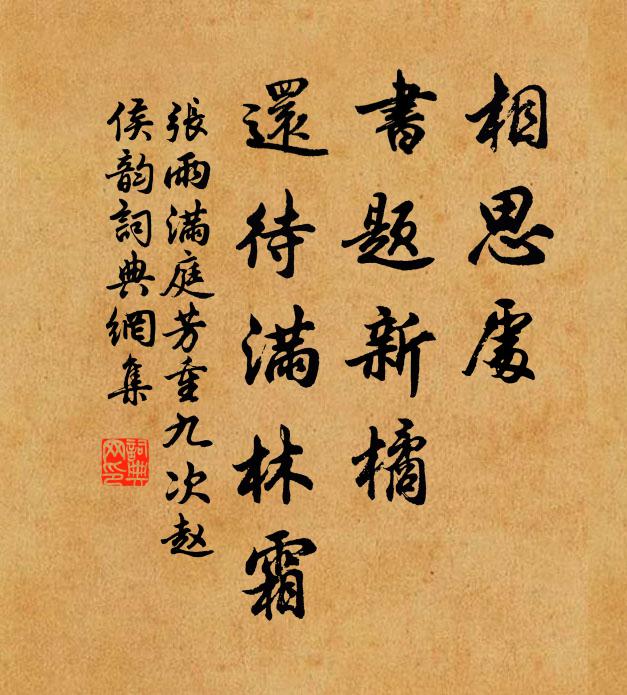 相思處
書題新橘
還待滿林霜
張雨滿庭芳重九次赵
侯韵詞典網集
詞典網印